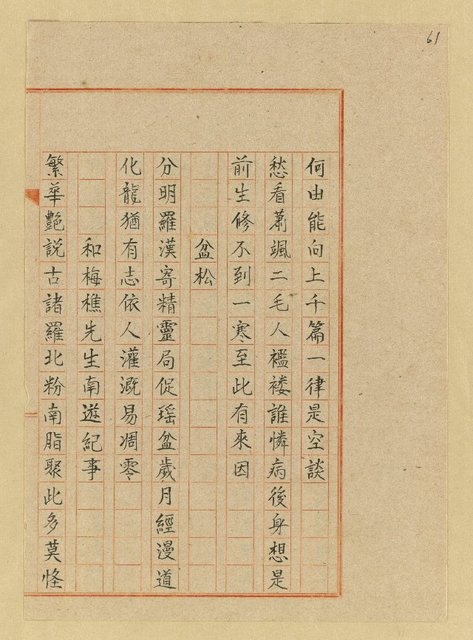 61
何由能向上千篇一律是空談
愁看蕭颯二毛人襤褸誰憐病後身想是
前生修不到一寒至此有來因
盆松
分明羅漢寄精靈局促瑤盆歲月經漫道
化龍猶有志依人灌溉易凋零
和梅樵先生南遊紀事
繁華艷說古諸羅北粉南脂聚此多莫怪